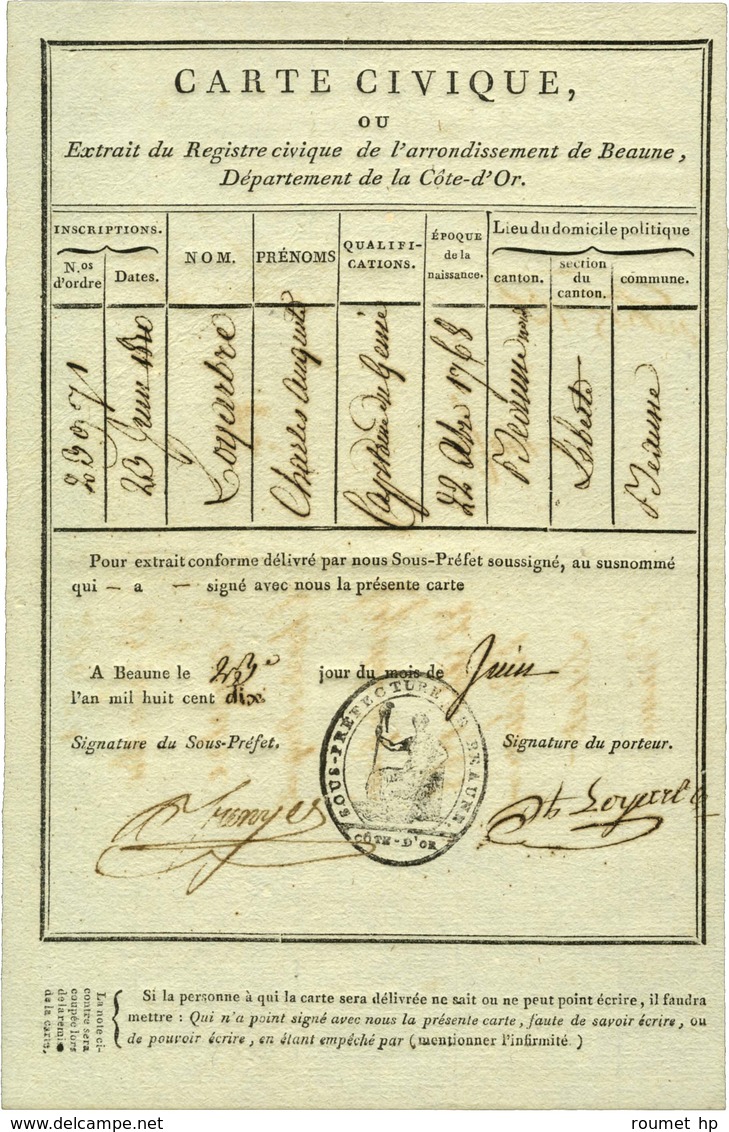 CARTE CIVIQUE,
OU
Extrait du Registre civique de l'arrondissement de Beaune,
Département de la Côte-d'Or.
INSCRIPTIONS.
N.os d'ordre
Dates.
NOM.
PRÉNOMS
QUALIFI-
CATIONS.
ÉPOQUE
de la
naissance.
Lieu du domicile politique
canton.
section
du
canton.
commune.
23 Juin 1810
Loyarbre
Charles Auguste
Capitaine du Genie
22 Xbre 1768
Beaune nord
Liberté
Beaune
Pour extrait conforme délivré par nous Sous-Préfet soussigné, au susnommé
qui — a — signé avec nous la présente carte
A Beaune le 23e jour du mois de Juin
l'an mil huit cent dix
Signature du Sous-Préfet.
Signature du porteur.
SOUS-PRÉFECTURE DE BEAUNE
CÔTE-D'OR
La note ci-
contre sera
coupée lors
de la remi-
de la carte.
Si la personne à qui la carte sera délivrée ne sait ou ne peut point écrire, il faudra
mettre : Qui n'a point signé avec nous la présente carte, faute de savoir écrire, ou
de pouvoir écrire, en étant empêché par (mentionner l'infirmité.)
roumet hp